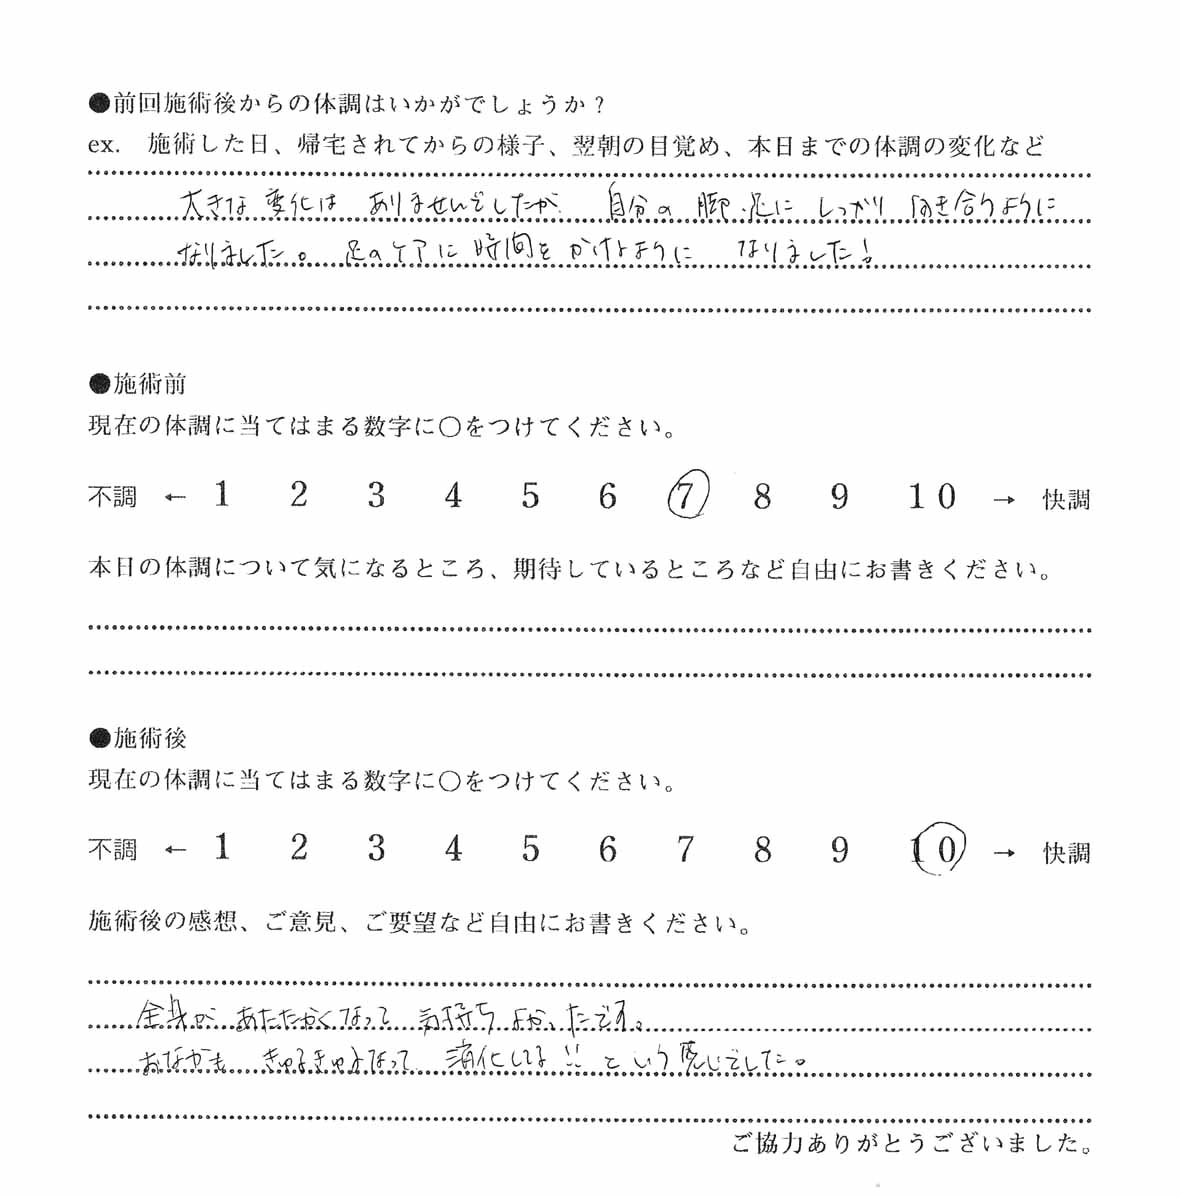 ●前回施術後からの体調はいかがでしょうか？
ex. 施術した日、帰宅されてからの様子、翌朝の目覚め、本日までの体調の変化など
大きな変化は ありませんでしたが 自分の 脚・足に しっかり 向き合うように
なりました。足のケアに時間をかけるように なりました！
●施術前
現在の体調に当てはまる数字に○をつけてください。
不調 ← 1 2 3 4 5 6 7 8 9 10 → 快調
本日の体調について気になるところ、期待しているところなど自由にお書きください。
●施術後
現在の体調に当てはまる数字に○をつけてください。
不調 ← 1 2 3 4 5 6 7 8 9 10 → 快調
施術後の感想、ご意見、ご要望など自由にお書きください。
全身が あたたかくなって 気持ち よかったです。
おなかも きゅるきゅるなって 消化してる!! という感じでした。
ご協力ありがとうございました。